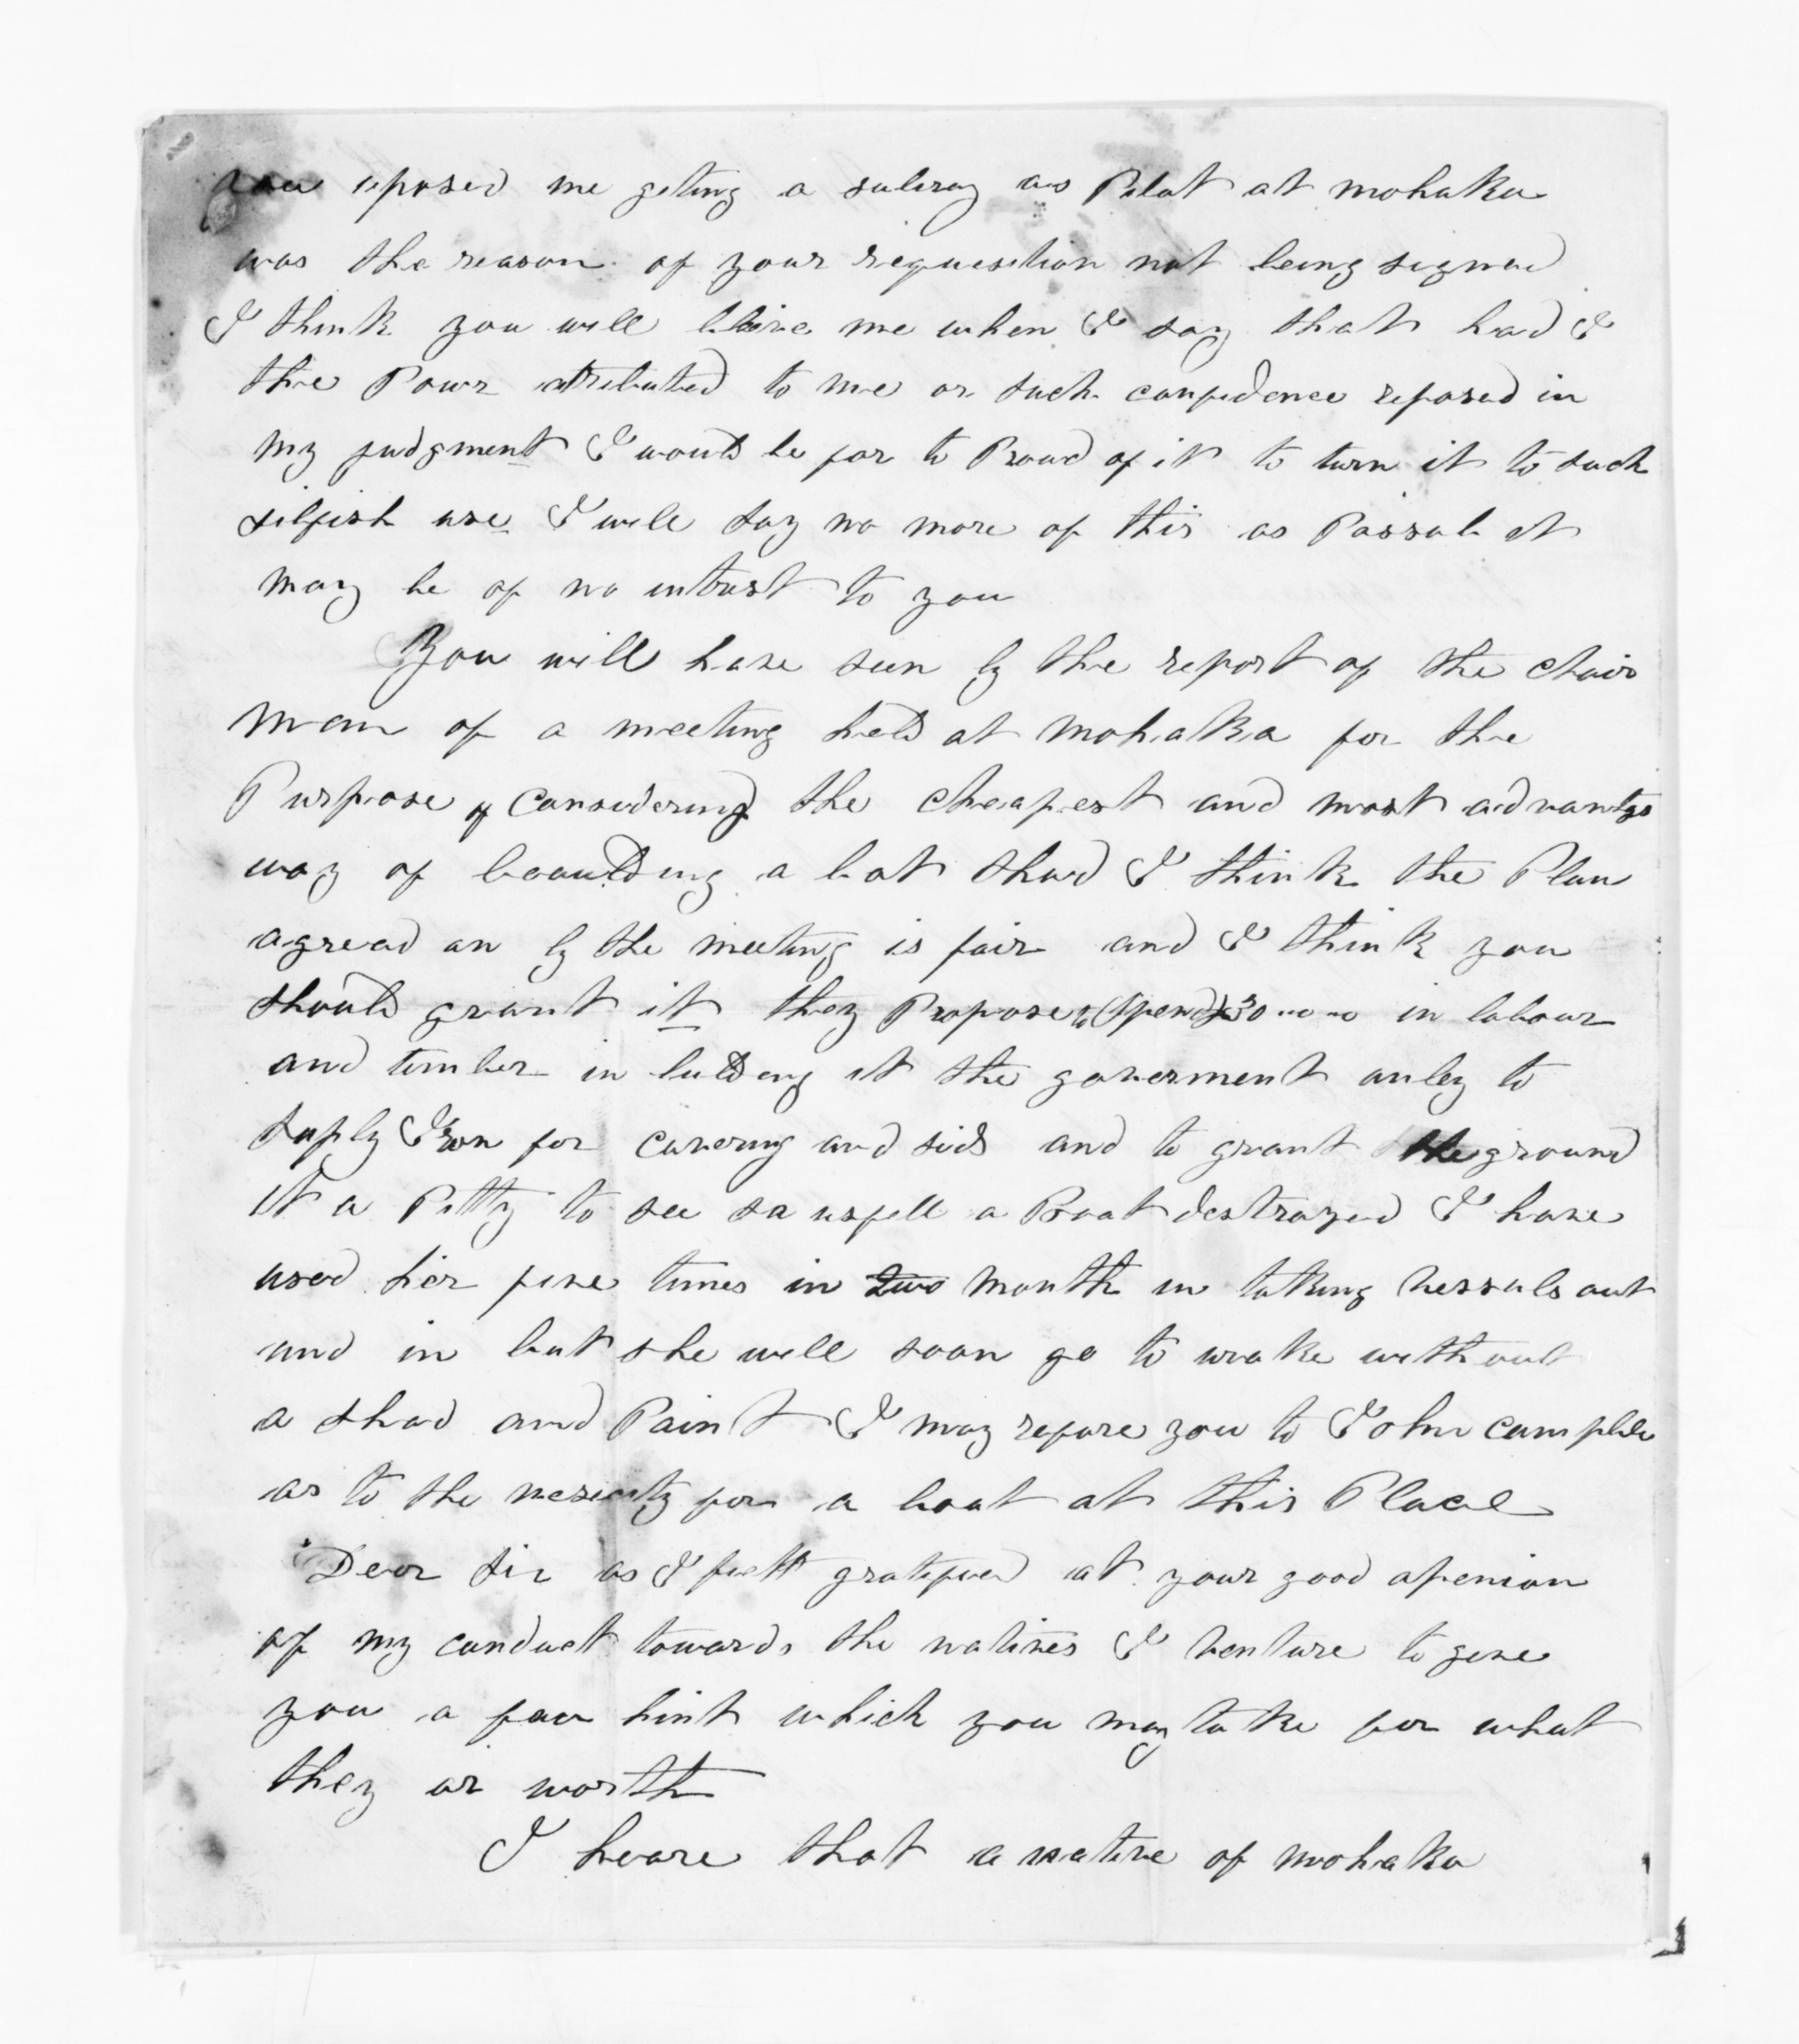 you oposed me geting a salery as Pilot at mohaka
was the reason of your requesition not being signed
I think you will bleive me when I say that had I
the Powr atributed to me or such confidence reposed in
my judgment I would be far to Proud of it to turn it to such
silfish use I will say no more of this as Passab it
may be of no intrest to you
You will have seen by the report of the chair
man of a meeting held at mohaka for the
Purpose of Considering the cheapest and most advantgs
way of boaulding a bot shad I think the Plan
agread on by the meeting is fair and I think you
should grant it they Propose to (spend) £30 " o " o in labour
and timber in bulding it the goverment onley to
suply Iron for covering and sids and to grant the ground
it a Pitty to see so usfell a Boat destroyed I have
used her five times in two month in taking vessals out
and in but she will soon go to wrake without
a shad and Paint I may refare you to John camplle
as to the nesicety for a boat at this Place
Dear Sir as I feelt gratifued at your good openion
of my conduct towards the natives I venture to geve
you a fau hint which you may take for what
they ar worth
I heare that a native of mohaka